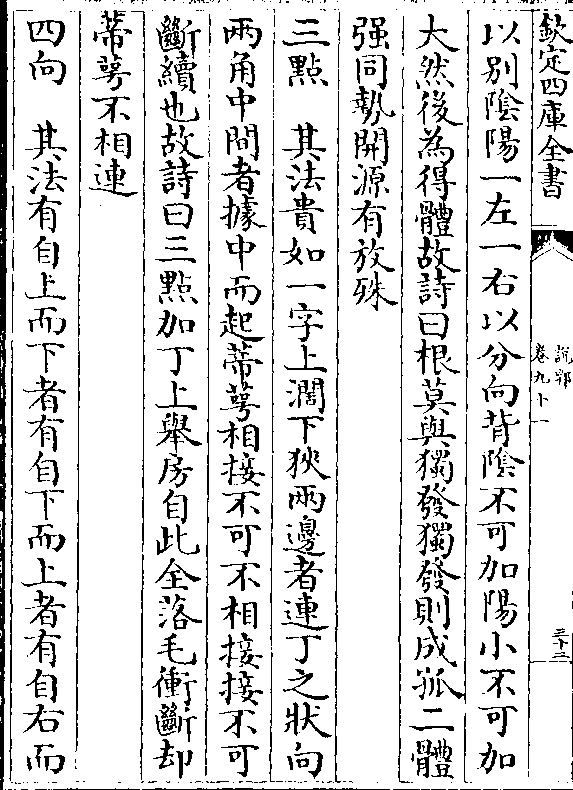 欽定四庫全書
說郛
卷九十一
三十三
以別陰陽一左一右以分向背陰不可加陽小不可加
大然後為得體故詩曰根莫與獨發獨發則成孤二體
强同勢開源有放殊
三㸃　其法貴如一字上濶下狹兩邊者連丁之狀向
兩角中間者據中而起蒂萼相接不可不相接接不可
斷續也故詩曰三㸃加丁上舉房自此全落毛衝斷却
蒂萼不相連
四向　其法有自上而下者有自下而上者有自右而